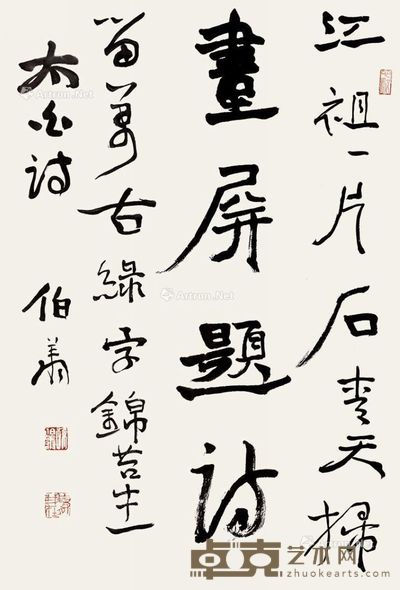 江祖一片石青天掃
畫屏題詩
留萬古綠字錦苔生
太白詩
伯
Artron.Net
Artron.Net
卓克艺术网
zhuokearts.com